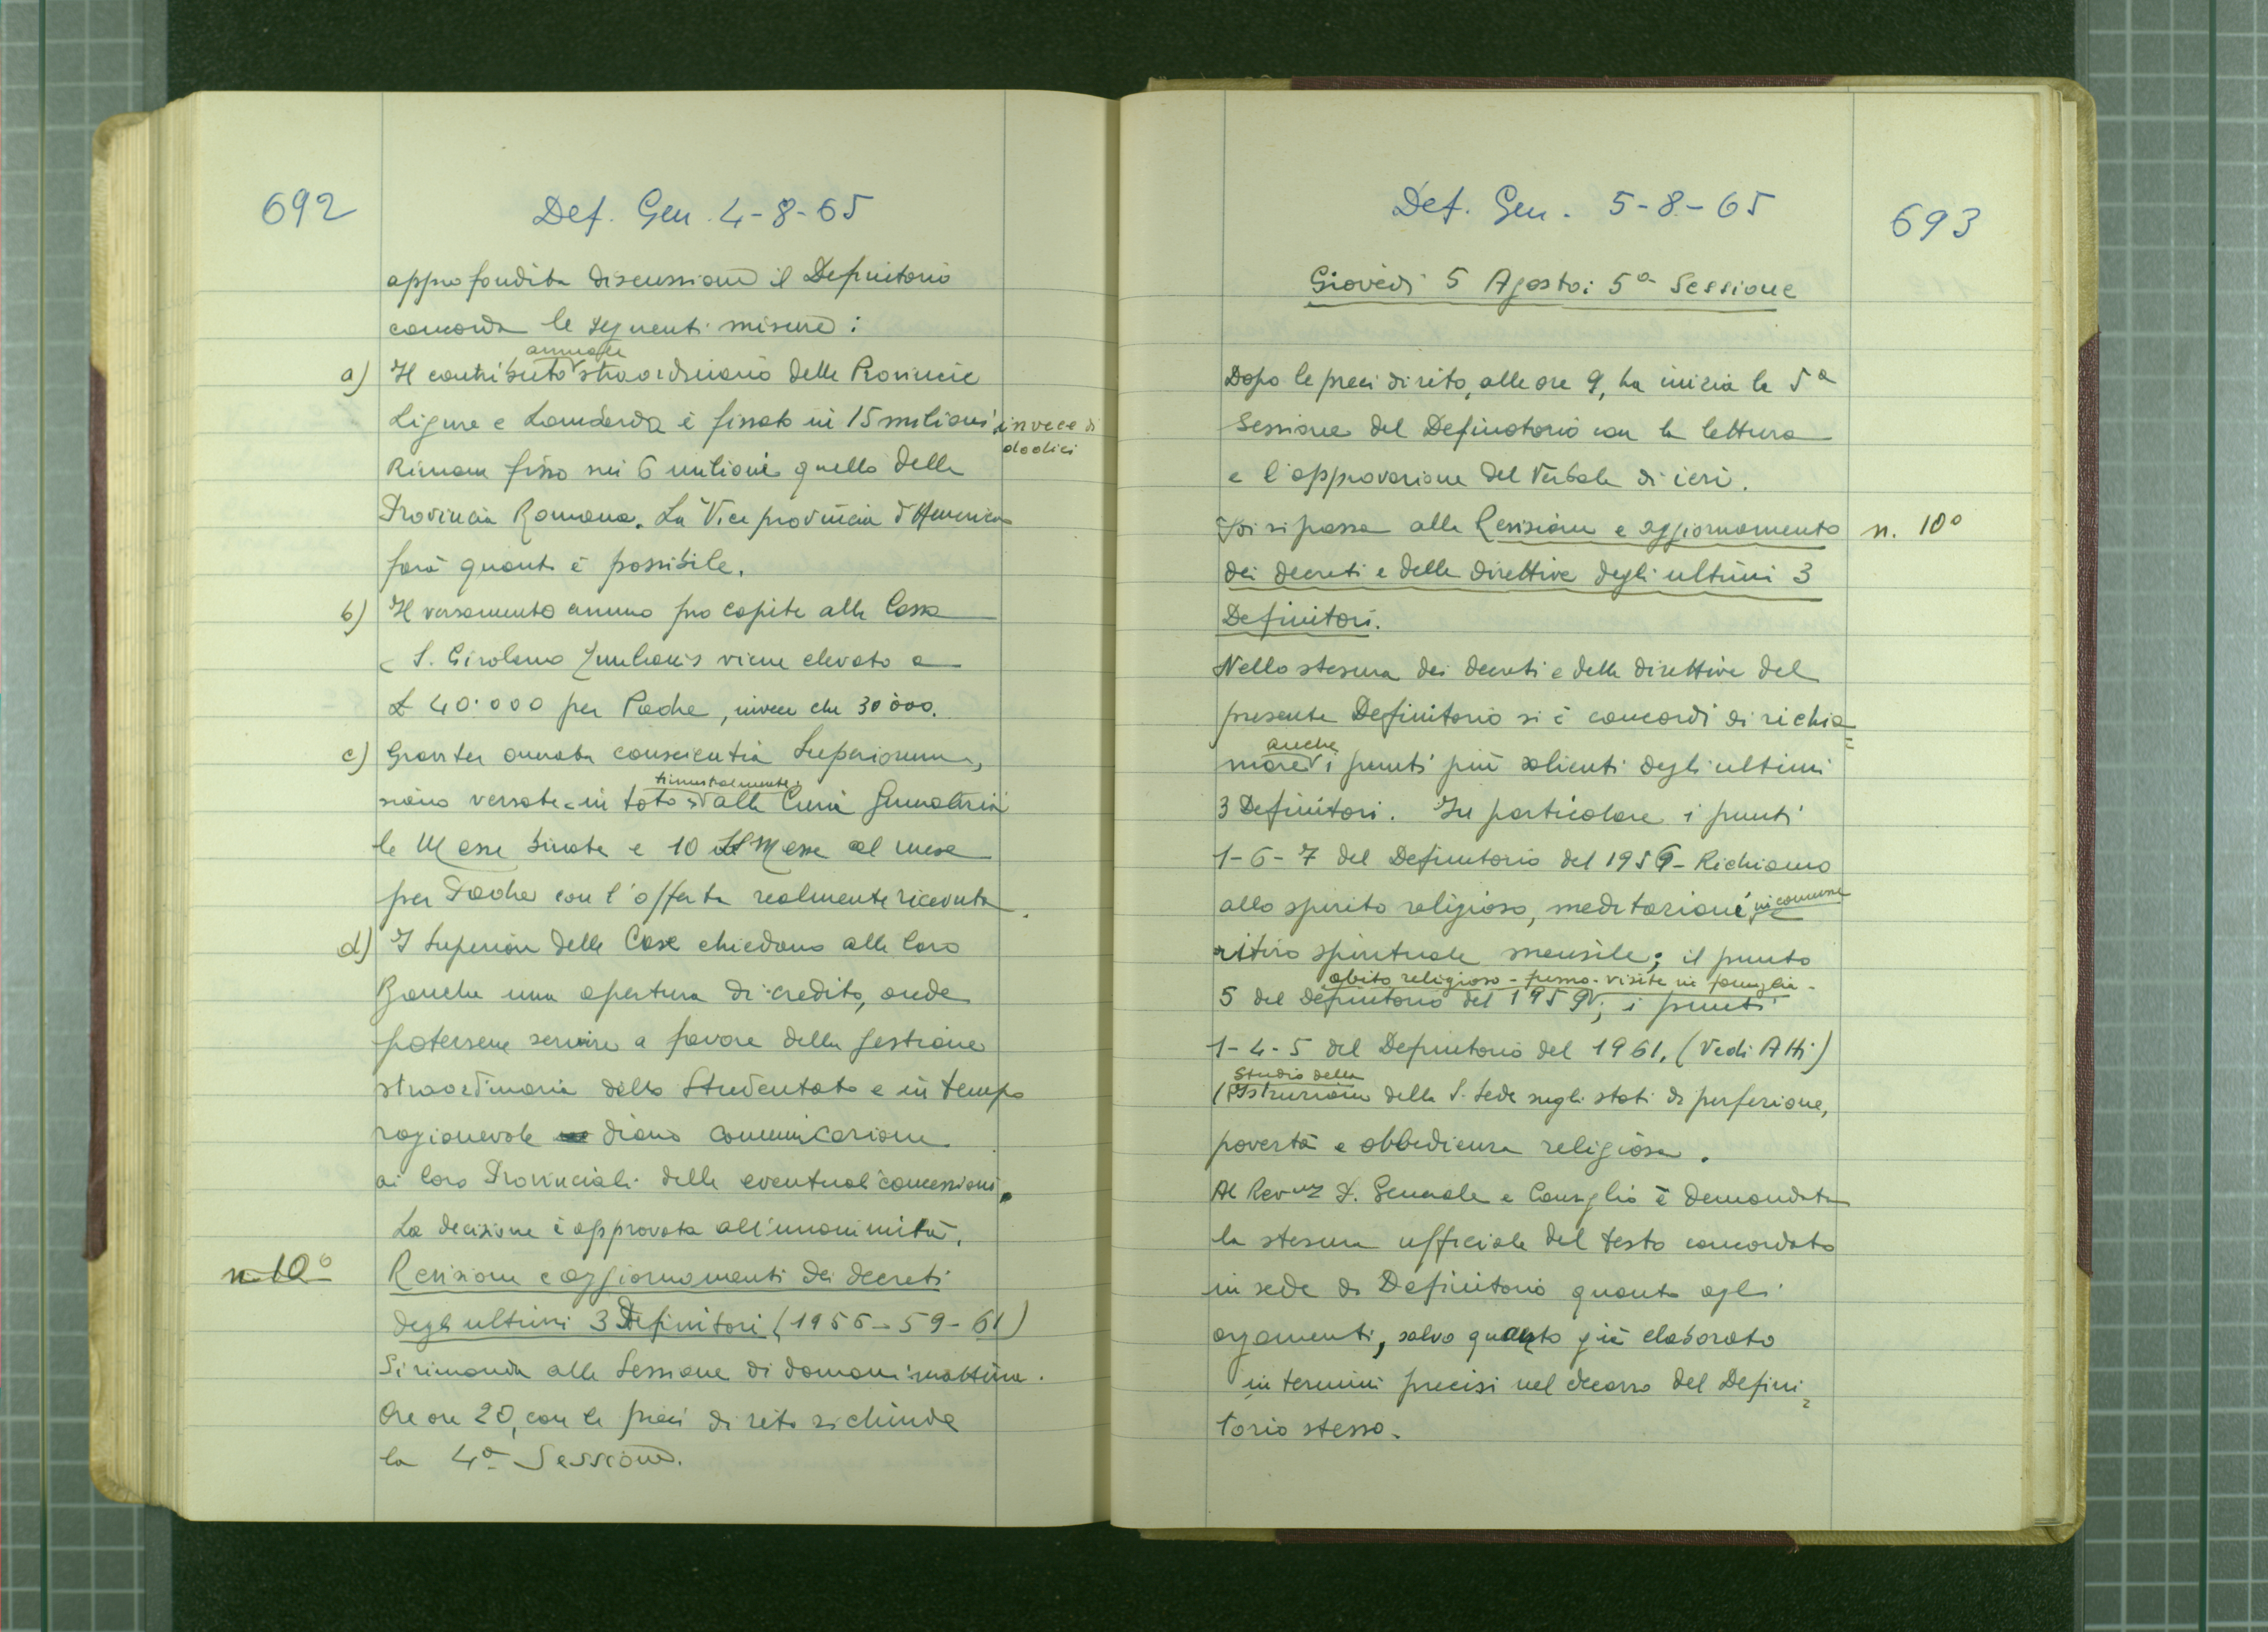 692
Def. Gen. 4-8-65
approfondita discussione il Definitorio
concorda le seguenti misure:
annuale
a) Il contributo straordinario delle Provincie
Ligure e Lombarda è fissato in 15 milioni invece di
dodici
Rimane fisso sui 6 milioni quello della
Provincia Romana. La Vice provincia d'America
farà quanto è possibile.
b) Il versamento annuo pro capite alla Cassa
S. Girolamo viene elevato a
£ 40.000 per Padre, invece che 30.000.
c) Graviter onerata conscientia Superiorum,
trimestralmente
siano versate in toto alla Curia Generalizia
le Messe binate e 10 Messe al mese
per Padre con l'offerta realmente ricevuta.
d) I Superiori delle Case chiedano alle loro
Banche una apertura di credito, onde
potersene servire a favore della gestione
straordinaria dello Studentato e in tempo
ragionevole diano comunicazione
ai loro Provinciali delle eventuali concessioni.
La decisione è approvata all'unanimità.
n. 10° Revisione e aggiornamenti dei decreti
degli ultimi 3 Definitori (1956-59-61)
Si rimanda alla Sessione di domani mattina.
Ore 20, con le preci di rito si chiude
la 4a Sessione.
Def. Gen. 5-8-65
693
Giovedì 5 Agosto: 5a Sessione
Dopo le preci di rito, alle ore 9, ha inizio la 5a
Sessione del Definitorio con la lettura
e l'approvazione del Verbale di ieri.
Poi si passa alla Revisione e aggiornamento n. 10°
dei decreti e delle direttive degli ultimi 3
Definitori.
Nella stesura dei decreti e delle direttive del
presente Definitorio si è concordi di richia=
anche
mare i punti più salienti degli ultimi
3 Definitori. In particolare i punti
1-6-7 del Definitorio del 1956 - Richiamo
allo spirito religioso, meditazione in comune
ritiro spirituale mensile; il punto
abito religioso - fumo - visite in famiglia -
5 del Definitorio del 1959; i punti
1-4-5 del Definitorio del 1961. (Vedi Atti)
Studio della
Istruzione della S. Sede sugli stati di perfezione,
povertà e obbedienza religiosa.
Al Rev.mo P. Generale e Consiglio è demandata
la stesura ufficiale del testo concordato
in sede di Definitorio quanto agli
argomenti, salvo quanto già elaborato
in termini precisi nel decorso del Defini=
torio stesso.